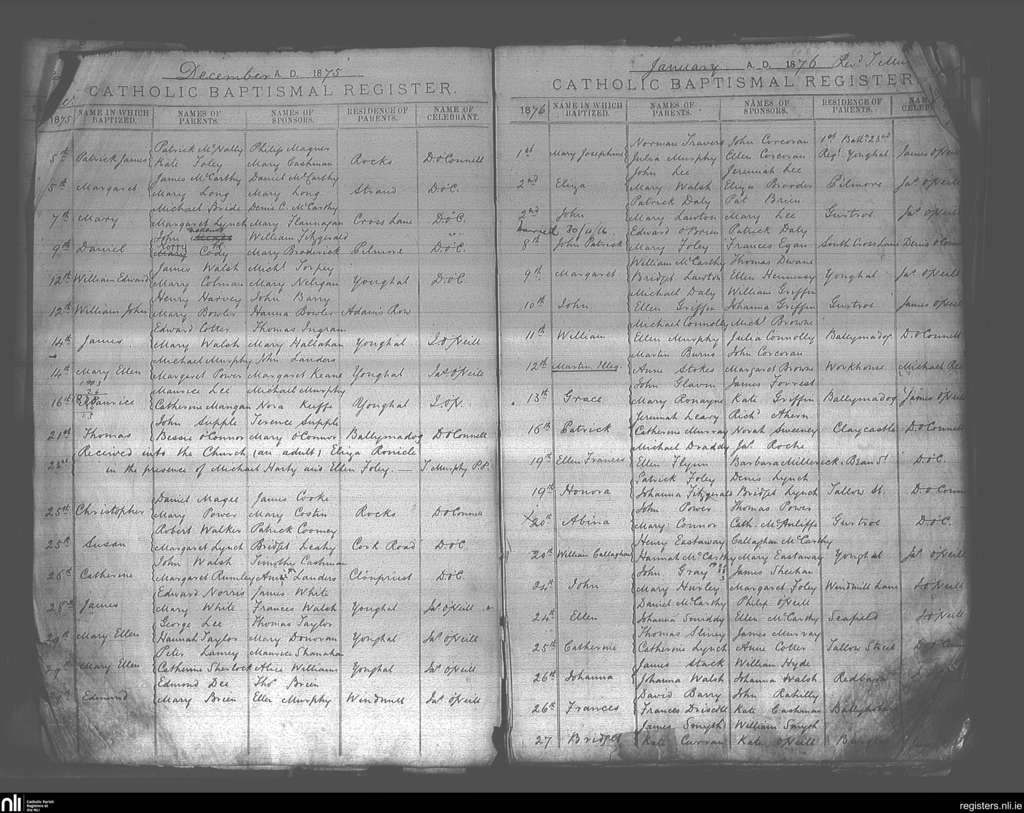 December A.D. 1875
CATHOLIC BAPTISMAL REGISTER.
1875 NAME IN WHICH BAPTIZED. NAMES OF PARENTS. NAMES OF SPONSORS. RESIDENCE OF PARENTS. NAME OF CELEBRANT.
Patrick McNally Philip Magner
5th Patrick James Kate Foley Mary Cashman Rocks D O'Connell
James McCarthy Daniel McCarthy
5th Margaret Mary Long Mary Long Strand D.O'C.
Michael Bride Denis C. McCarthy
7th Mary Margaret Lynch Mary Flannagan Cross Lane D.O'C.
John William Fitzgerald
9th Daniel Cody Mary Broderick Pilmore D.O'C.
James Walsh Michl Torpey
12th William Edward Mary Colman Mary Neligan Youghal D.O'C.
Henry Harvey John Barry
12th William John Mary Bowler Hanna Bowler Adam's Row
Edward Cotter Thomas Ingram
14th James Mary Walsh Mary Hallahan Youghal J. O'Neill
Michael Murphy John Landers
14th Mary Ellen Margaret Power Margaret Keane Youghal Jas O'Neill
Maurice Lee Michael Murphy
16th Maurice Catherine Mangan Nora Keiffe Youghal J. O'N.
John Supple Terence Supple
21st Thomas Bessie O'Connor Mary O'Connor Ballymadog D O'Connell
Received into the Church (an adult) Eliza Ronicle
23rd in the presence of Michael Harty and Ellen Foley. — J. Murphy P.P.
Daniel Magee James Cooke
25th Christopher Mary Power Mary Costin Rocks D O'Connell
Robert Walker Patrick Cooney
25th Susan Margaret Lynch Bridget Leahy Cork Road D.O'C.
John Walsh Timothy Cashman
26th Catherine Margaret Rumley Anne Landers Clonpriest D.O'C.
Edward Norris James White
28th James Mary White Frances Walsh Youghal Jas O'Neill
George Lee Thomas Taylor
29th Mary Ellen Hannah Taylor Mary Donovan Youghal Jas O'Neill
Peter Lamey Maurice Shanahan
Mary Ellen Catherine Sherlock Alice Williams Youghal Jas O'Neill
Edmond Dee Thos Brien
Edmond Mary Brien Ellen Murphy Windmill Jas O'Neill
January A.D. 1876 Revd
CATHOLIC BAPTISMAL REGISTER
1876 NAME IN WHICH BAPTIZED. NAMES OF PARENTS. NAMES OF SPONSORS. RESIDENCE OF PARENTS.
Norman Travers John Corcoran 1st Batt 23rd
1st Mary Josephine Julia Murphy Ellen Corcoran Regt Youghal James O'Neill
John Lee Jeremiah Lee
2nd Eliza Mary Walsh Eliza Brooder Pilmore Jas O'Neill
Patrick Daly Pat Brien
2nd John Mary Lawton Mary Lee Gurtroe Jas O'Neill
Married 30/11/16 Edward O'Brien Patrick Daly
8th John Patrick Mary Foley Frances Egan South Cross Lane Denis O'Conn
William McCarthy Thomas Dwane
9th Margaret Bridget Lawton Ellen Hennessy Youghal Jas O'Neill
Michael Daly William Griffin
10th John Ellen Griffin Johanna Griffin Gurtroe James O'Neill
Michael Connolly Michl Browne
11th William Ellen Murphy Julia Connolly Ballymadog D O'Connell
Martin Burns John Corcoran
12th Martin Illeg. Anne Stokes Margaret Brown Workhouse Michael
John Glavin James Forrest
13th Grace Mary Ronayne Kate Griffin Ballymadog James O'Neill
Jeremiah Leary Richd Ahern
16th Patrick Catherine Murray Norah Sweeney Claycastle D O'Connell
Michael Draddy Jas Roche
19th Ellen Frances Ellen Flynn Barbara Millerick Bran St D.O'C.
Patrick Foley Denis Lynch
19th Honora Johanna Fitzgerald Bridget Lynch Tallow St. D.O'Conn
John Power Thomas Power
20th Abina Mary Connor Cath. McAuliffe Gurtroe D.O'C.
Henry Eastaway Callaghan McCarthy
20th William Callaghan Hannah McCarthy Mary Eastaway Youghal Jas O'Neill
John Gray James Sheehan
24th John Mary Hurley Margaret Foley Windmill Lane J O'Neill
Daniel McCarthy Philip O'Neill
24th Ellen Johanna Ellen McCarthy Seafield J O'Neill
Thomas James Murray
25th Catherine Catherine Lynch Anne Cotter Tallow Street
James Stack William Hyde
26th Johanna Johanna Walsh Johanna Walsh
David Barry John Rahilly
26th Frances Frances Driscoll Kate Cashman
James Smyth William Smyth
27 Bridget Kate Curran Kate O'Neill
nli Catholic Parish Registers at the NLI
registers.nli.ie